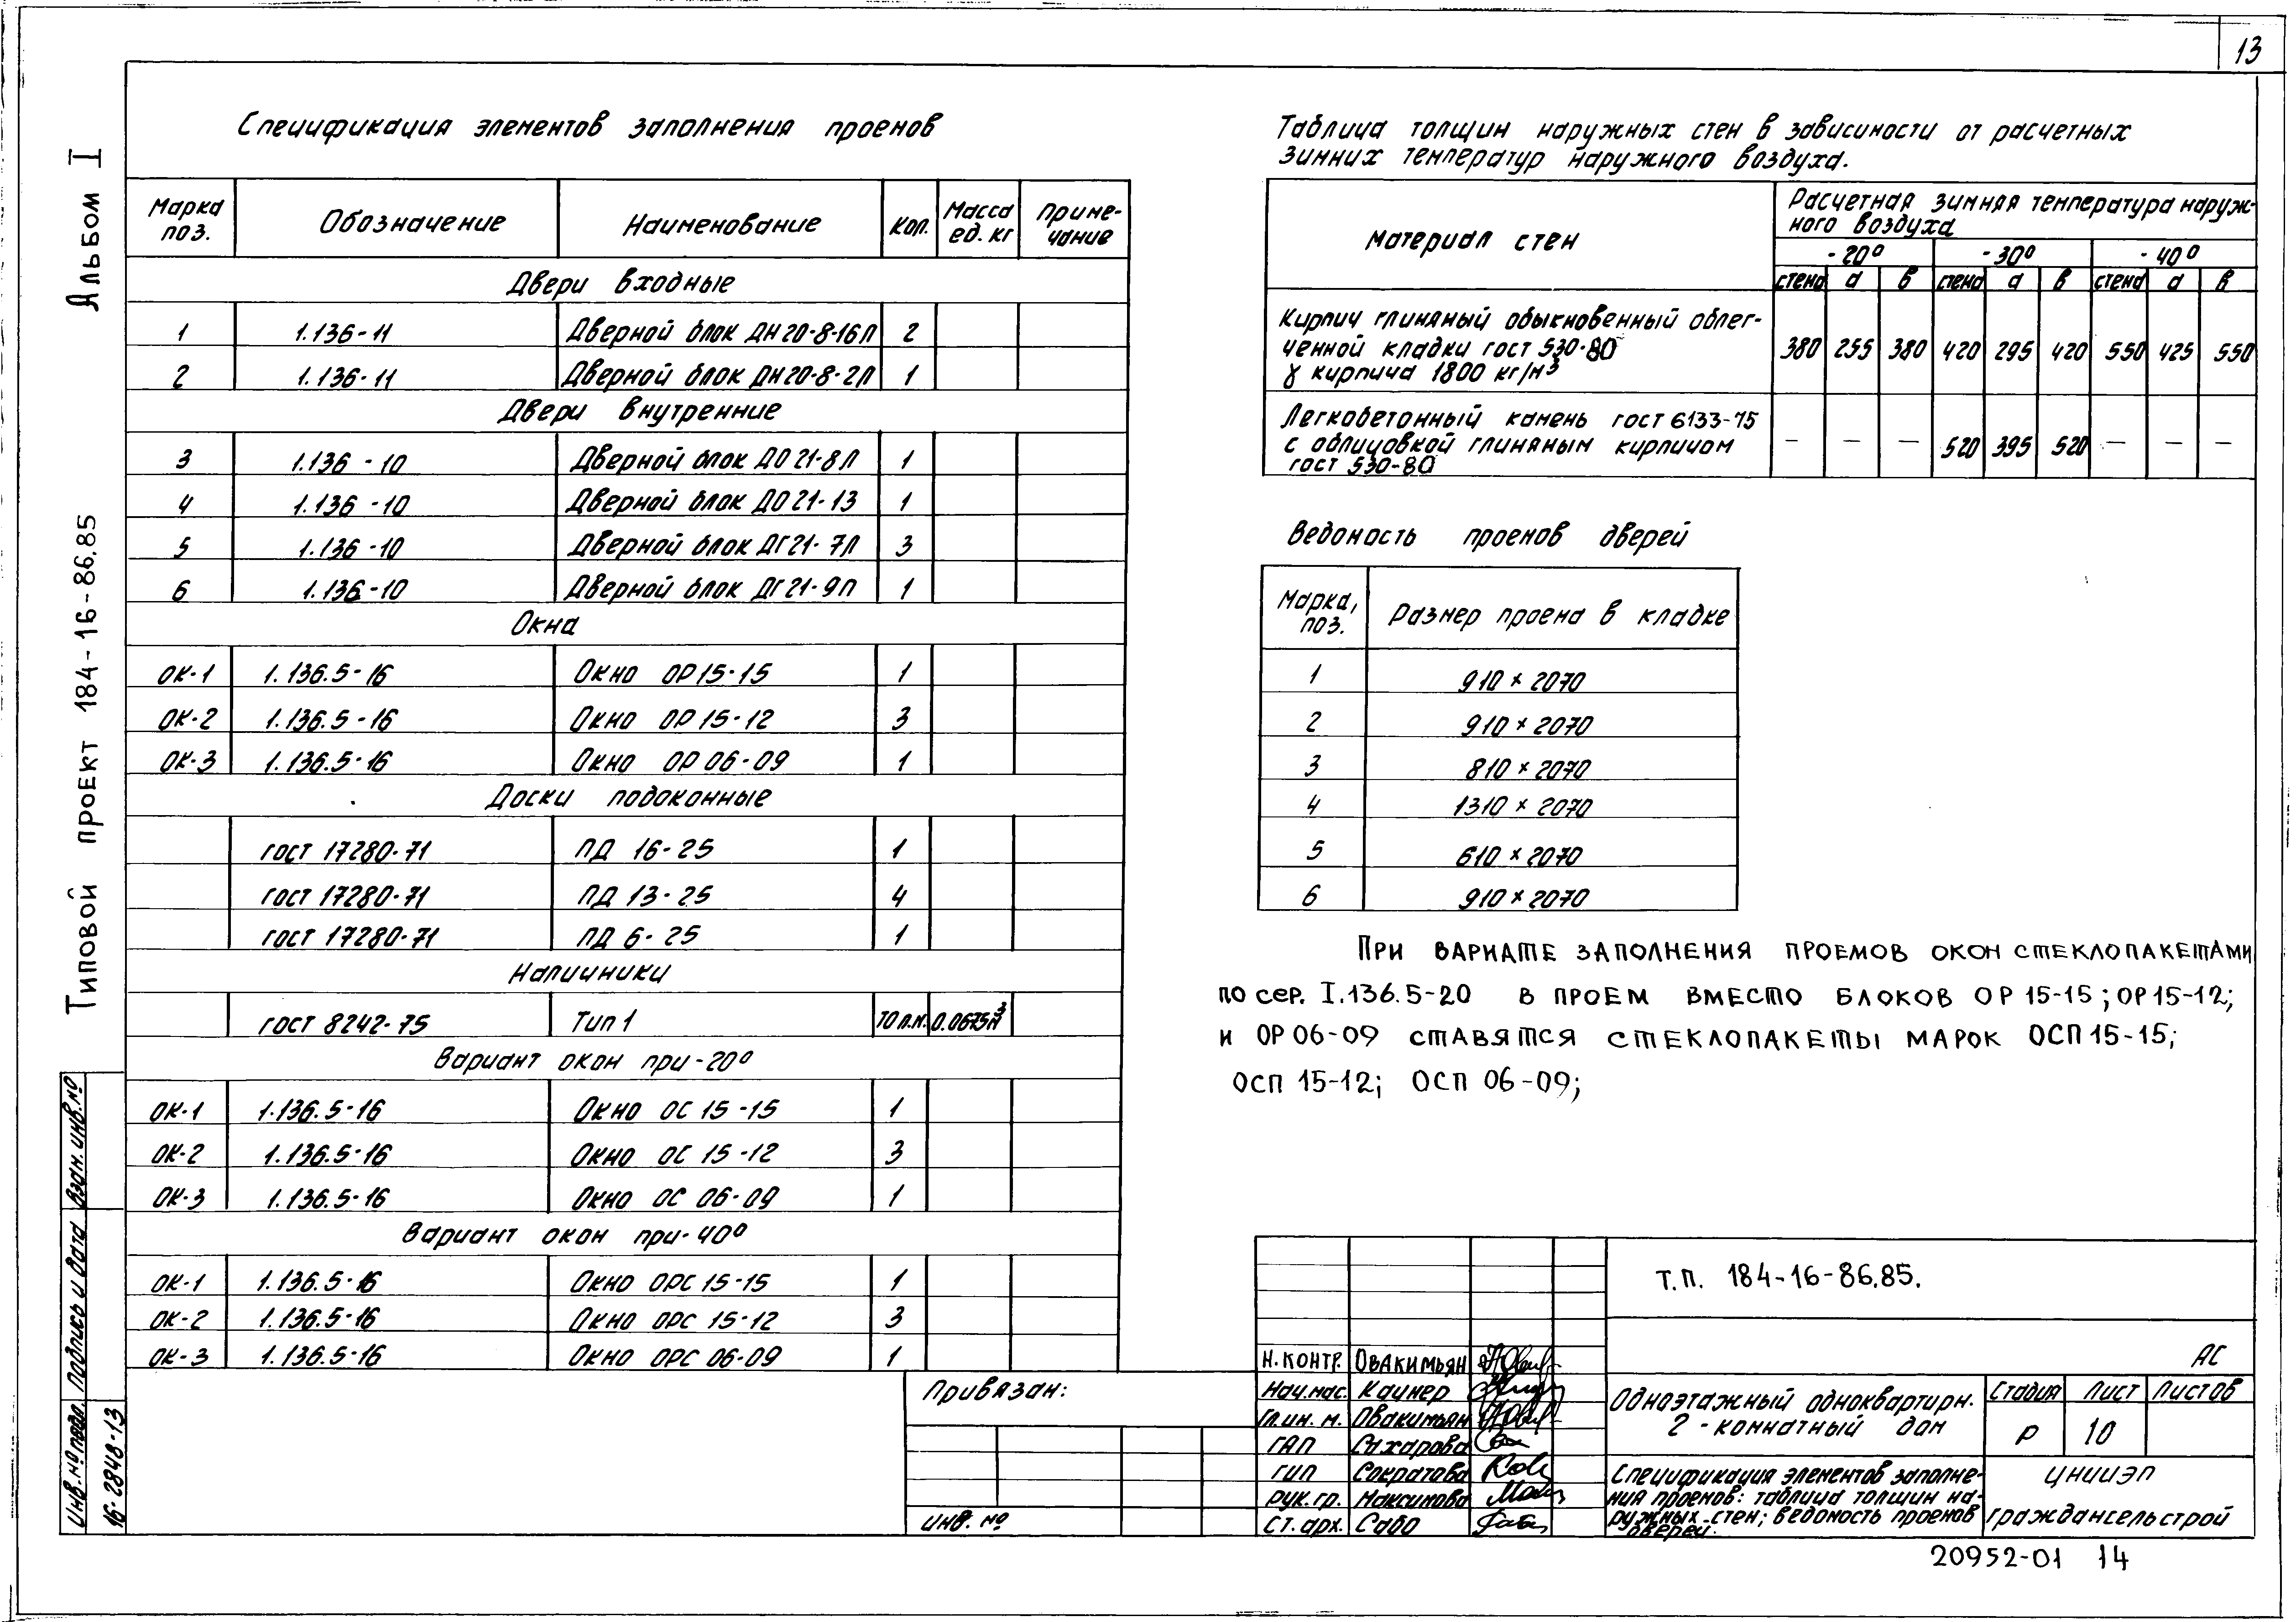 13
Альбом I
Типовой проект 184-16-86.85
Спецификация элементов заполнения проемов
Марка поз. | Обозначение | Наименование | Кол. | Масса ед. кг | Примечание
Двери входные
1 | 1.136-11 | Дверной блок ДН 20-8-16П | 2
2 | 1.136-11 | Дверной блок ДН 20-8-2Л | 1
Двери внутренние
3 | 1.136-10 | Дверной блок ДО 21-8Л | 1
4 | 1.136-10 | Дверной блок ДО 21-13 | 1
5 | 1.136-10 | Дверной блок ДГ 21-7Л | 3
6 | 1.136-10 | Дверной блок ДГ 21-9П | 1
Окна
ОК-1 | 1.136.5-16 | Окно ОР 15-15 | 1
ОК-2 | 1.136.5-16 | Окно ОР 15-12 | 3
ОК-3 | 1.136.5-16 | Окно ОР 06-09 | 1
Доски подоконные
гост 17280-71 | ПД 16-25 | 1
гост 17280-71 | ПД 13-25 | 4
гост 17280-71 | ПД 6-25 | 1
Наличники
гост 8242-75 | Тип 1 | 70 п.м. | 0.0675м³
Вариант окон при -20°
ОК-1 | 1.136.5-16 | Окно ОС 15-15 | 1
ОК-2 | 1.136.5-16 | Окно ОС 15-12 | 3
ОК-3 | 1.136.5-16 | Окно ОС 06-09 | 1
Вариант окон при -40°
ОК-1 | 1.136.5-16 | Окно ОРС 15-15 | 1
ОК-2 | 1.136.5-16 | Окно ОРС 15-12 | 3
ОК-3 | 1.136.5-16 | Окно ОРС 06-09 | 1
Таблица толщин наружных стен в зависимости от расчетных
зимних температур наружного воздуха.
Материал стен | Расчетная зимняя температура наруж-
ного воздуха
-20° | -30° | -40°
стена | а | в | стена | а | в | стена | а | в
Кирпич глиняный обыкновенный облег-
ченной кладки гост 530-80
γ кирпича 1800 кг/м³
380 | 255 | 380 | 420 | 295 | 420 | 550 | 425 | 550
Легкобетонный камень гост 6133-75
с облицовкой глиняным кирпичом
гост 530-80
— | — | — | 520 | 395 | 520 | — | — | —
Ведомость проемов дверей
Марка, поз. | Размер проема в кладке
1 | 910 × 2070
2 | 910 × 2070
3 | 810 × 2070
4 | 1310 × 2070
5 | 610 × 2070
6 | 910 × 2070
При вариате заполнения проемов окон стеклопакетами
по сер. I.136.5-20 в проем вместо блоков ОР 15-15; ОР 15-12;
и ОР 06-09 ставятся стеклопакеты марок ОСП 15-15;
ОСП 15-12; ОСП 06-09;
Привязан:
инв. №
Н. контр. Овакимьян
Нач. мас. Каунер
Гл. ин. м. Овакимьян
ГАП Сахарова
ГИП Сократова
рук. гр. Максимова
Ст. арх. Сабо
Т.П. 184-16-86.85.
АС
Одноэтажный одноквартирн.
2-комнатный дом
Стадия | Лист | Листов
Р | 10
Спецификация элементов заполне-
ния проемов: таблица толщин на-
ружных стен; ведомость проемов
дверей.
ЦНИИЭП
граждансельстрой
20952-01 14
Взам. инв. №
Подпись и дата
Инв. № подл.
16-2848-13